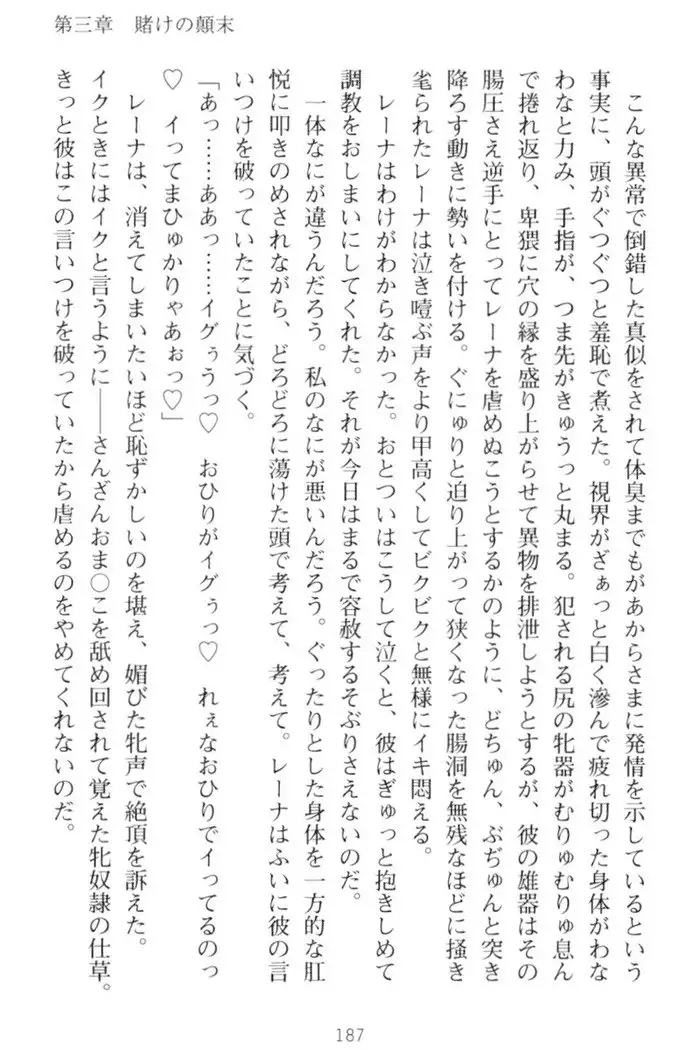 第三章　賭けの顛末
こんな異常で倒錯した真似をされて体臭までもがあからさまに発情を示しているという
事実に、頭がぐつぐつと羞恥で煮えた。視界がざぁっと白く滲んで疲れ切った身体がわな
わなと力み、手指が、つま先がきゅうっと丸まる。犯される尻の牝器がむりゅむりゅ息ん
で捲れ返り、卑猥に穴の縁を盛り上がらせて異物を排泄しようとするが、彼の雄器はその
腸圧さえ逆手にとってレーナを虐めぬこうとするかのように、どちゅん、ぶぢゅんと突き
降ろす動きに勢いを付ける。ぐにゅりと迫り上がって狭くなった腸洞を無残なほどに掻き
毟られたレーナは泣き噎ぶ声をより甲高くしてビクビクと無様にイキ悶える。
レーナはわけがわからなかった。おとついはこうして泣くと、彼はぎゅっと抱きしめて
調教をおしまいにしてくれた。それが今日はまるで容赦するそぶりさえないのだ。
一体なにが違うんだろう。私のなにが悪いんだろう。ぐったりとした身体を一方的な肛
悦に叩きのめされながら、どろどろに蕩けた頭で考えて、考えて。レーナはふいに彼の言
いつけを破っていたことに気づく。
「あっ……ああっ……イグぅうっ♡　おひりがイグぅっ♡　れぇなおひりでイってるのっ
♡　イってまひゅかりゃあぉっ♡」
レーナは、消えてしまいたいほど恥ずかしいのを堪え、媚びた牝声で絶頂を訴えた。
イクときにはイクと言うように――さんざんおま○こを舐め回されて覚えた牝奴隷の仕草。
きっと彼はこの言いつけを破っていたから虐めるのをやめてくれないのだ。
187